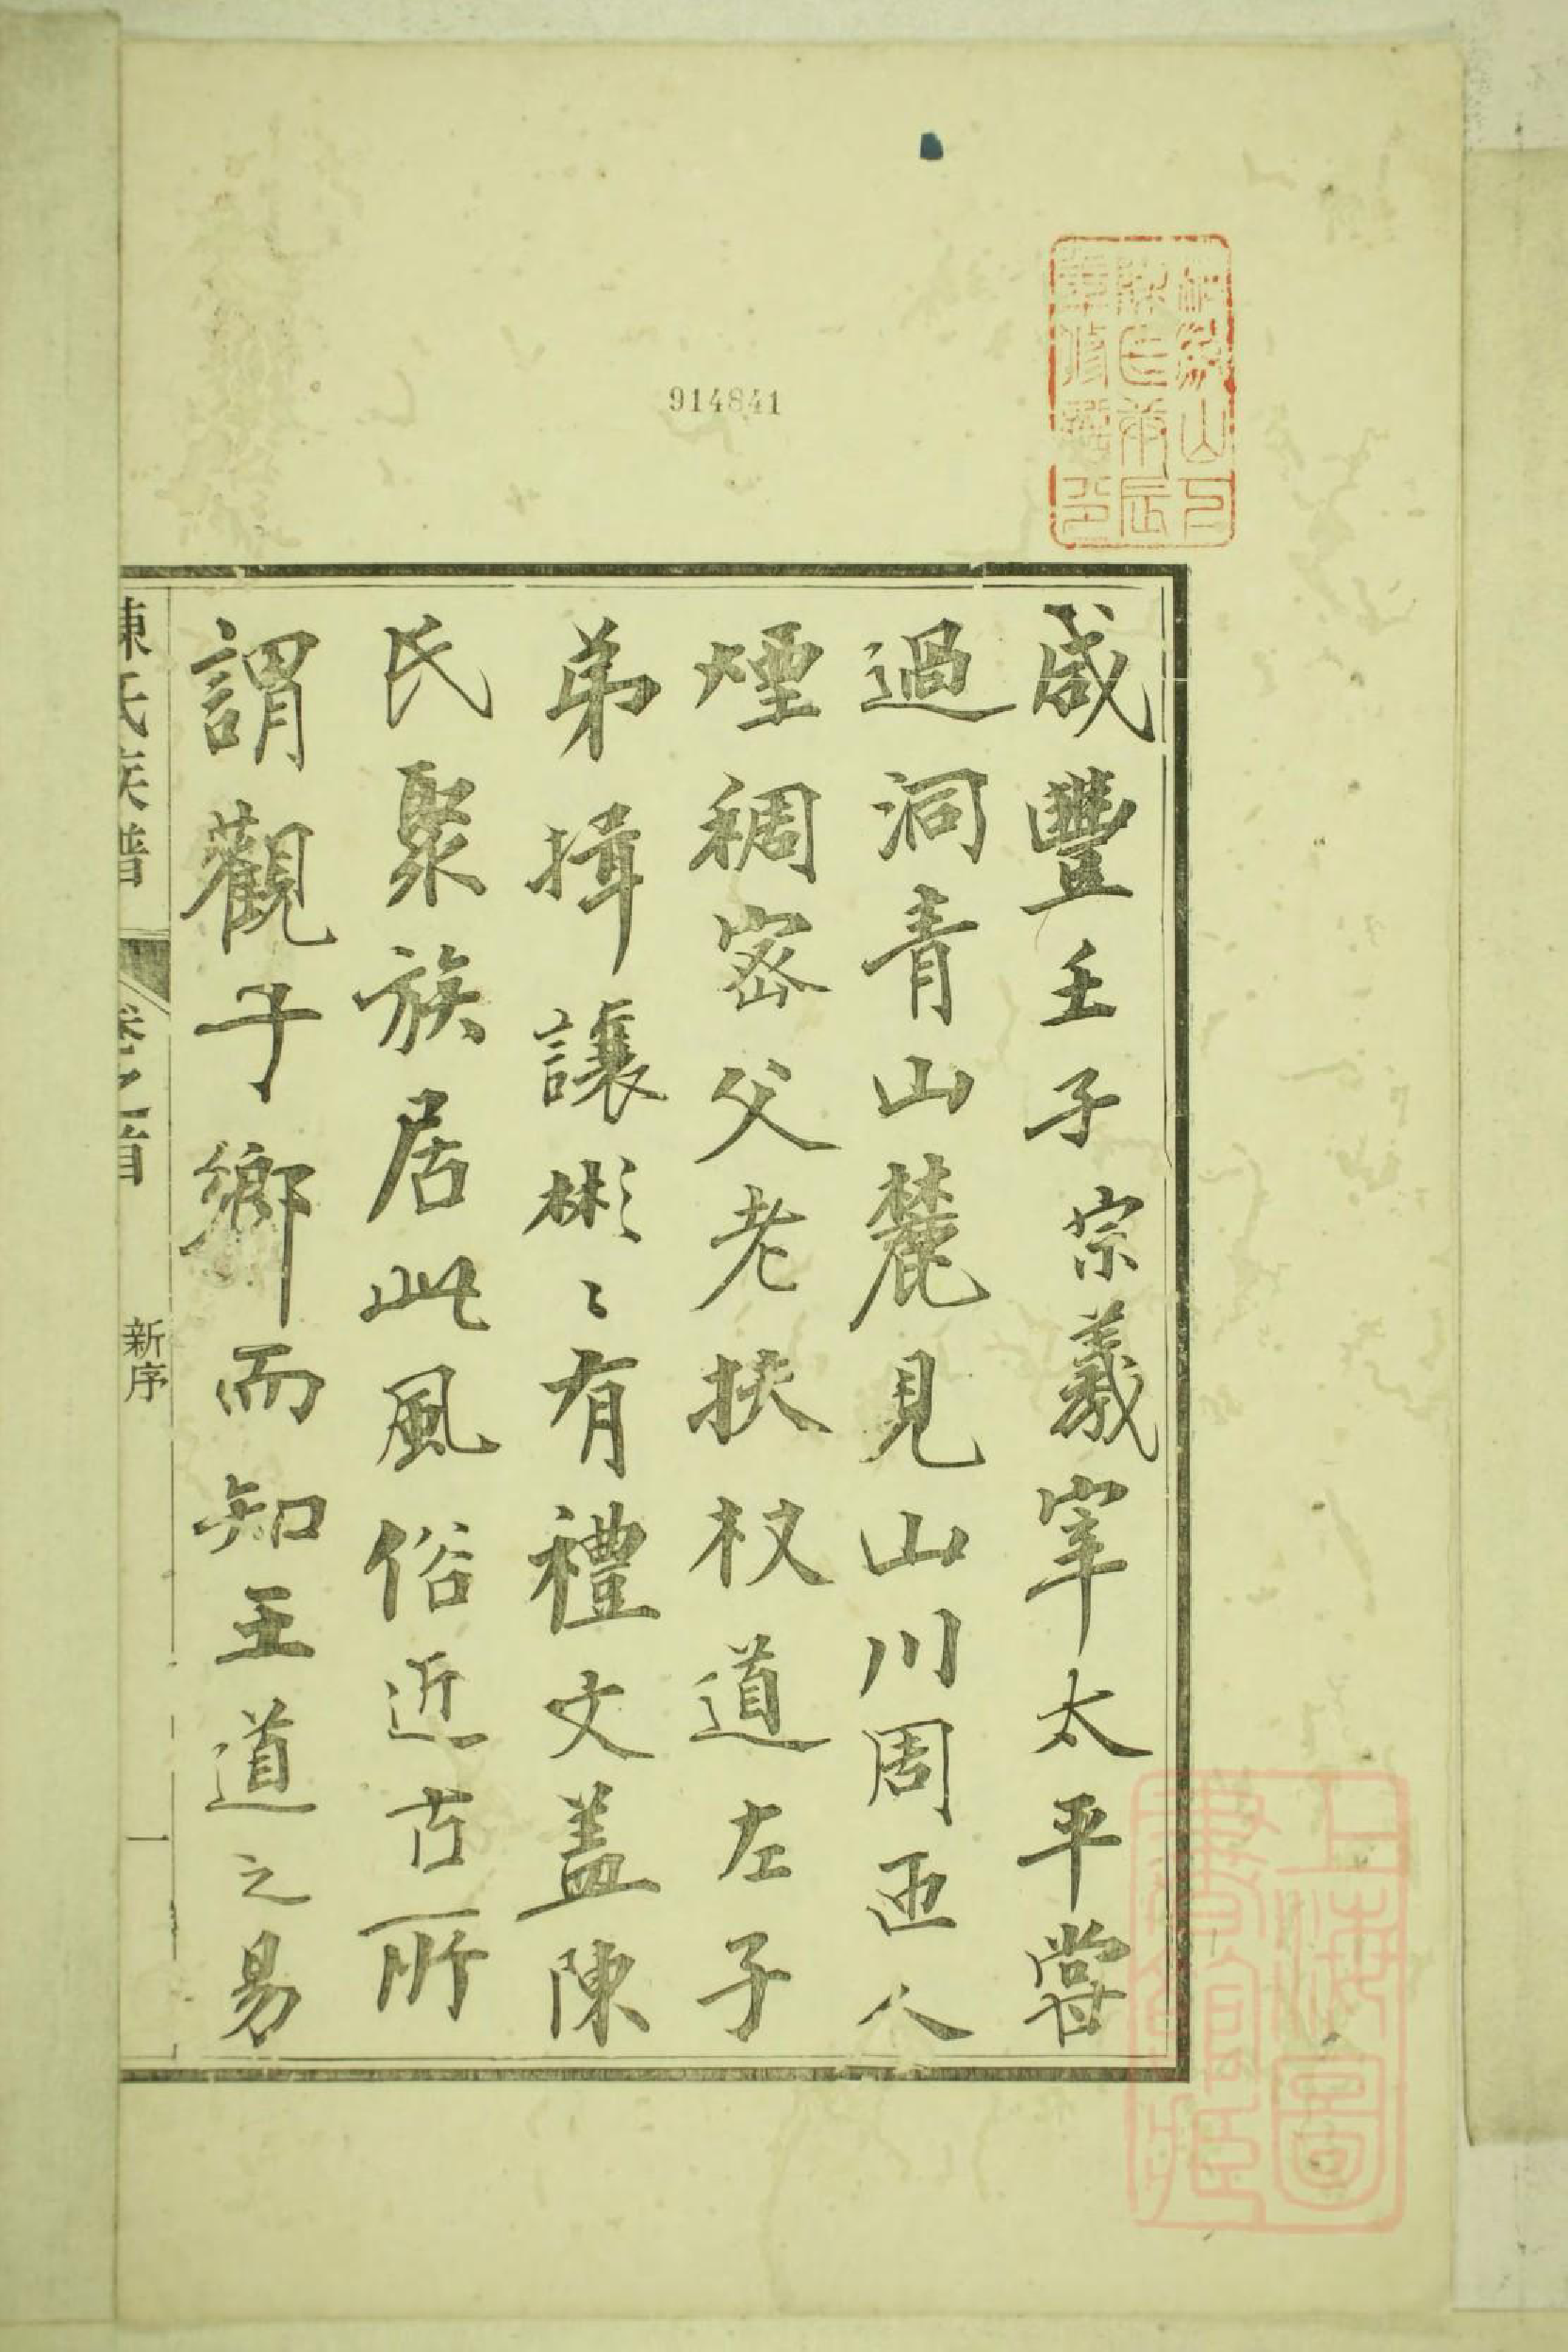 914841
咸豐壬子宗羲宰太平嘗
過洞青山麓見山川周匝人
煙稠密父老扶杖道左子
弟揖讓彬〻有禮文蓋陳
氏聚族居此風俗近古所
謂觀于鄉而知王道之易
陳氏族譜 卷之首 新序 一
上海圖
書館藏